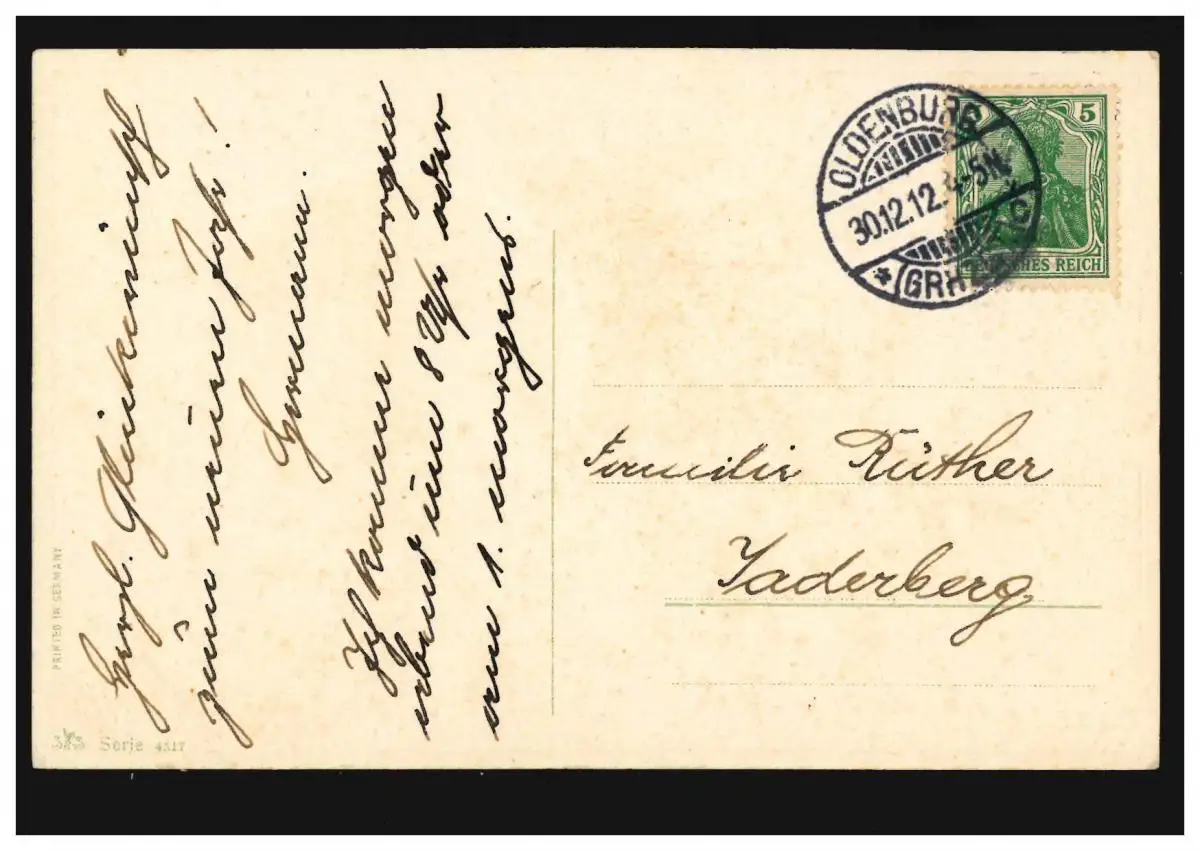 Herzl. Glückwunsch
zum neuen Jahr!
Hermann.
Ich komme morgen
abend um 8 Uhr oder
am 1. morgens.
OLDENBURG
30.12.12. 4-5N.
* GRH
5
DEUTSCHES REICH
Familie Rüther
Jaderberg
PRINTED IN GERMANY
Serie 4517